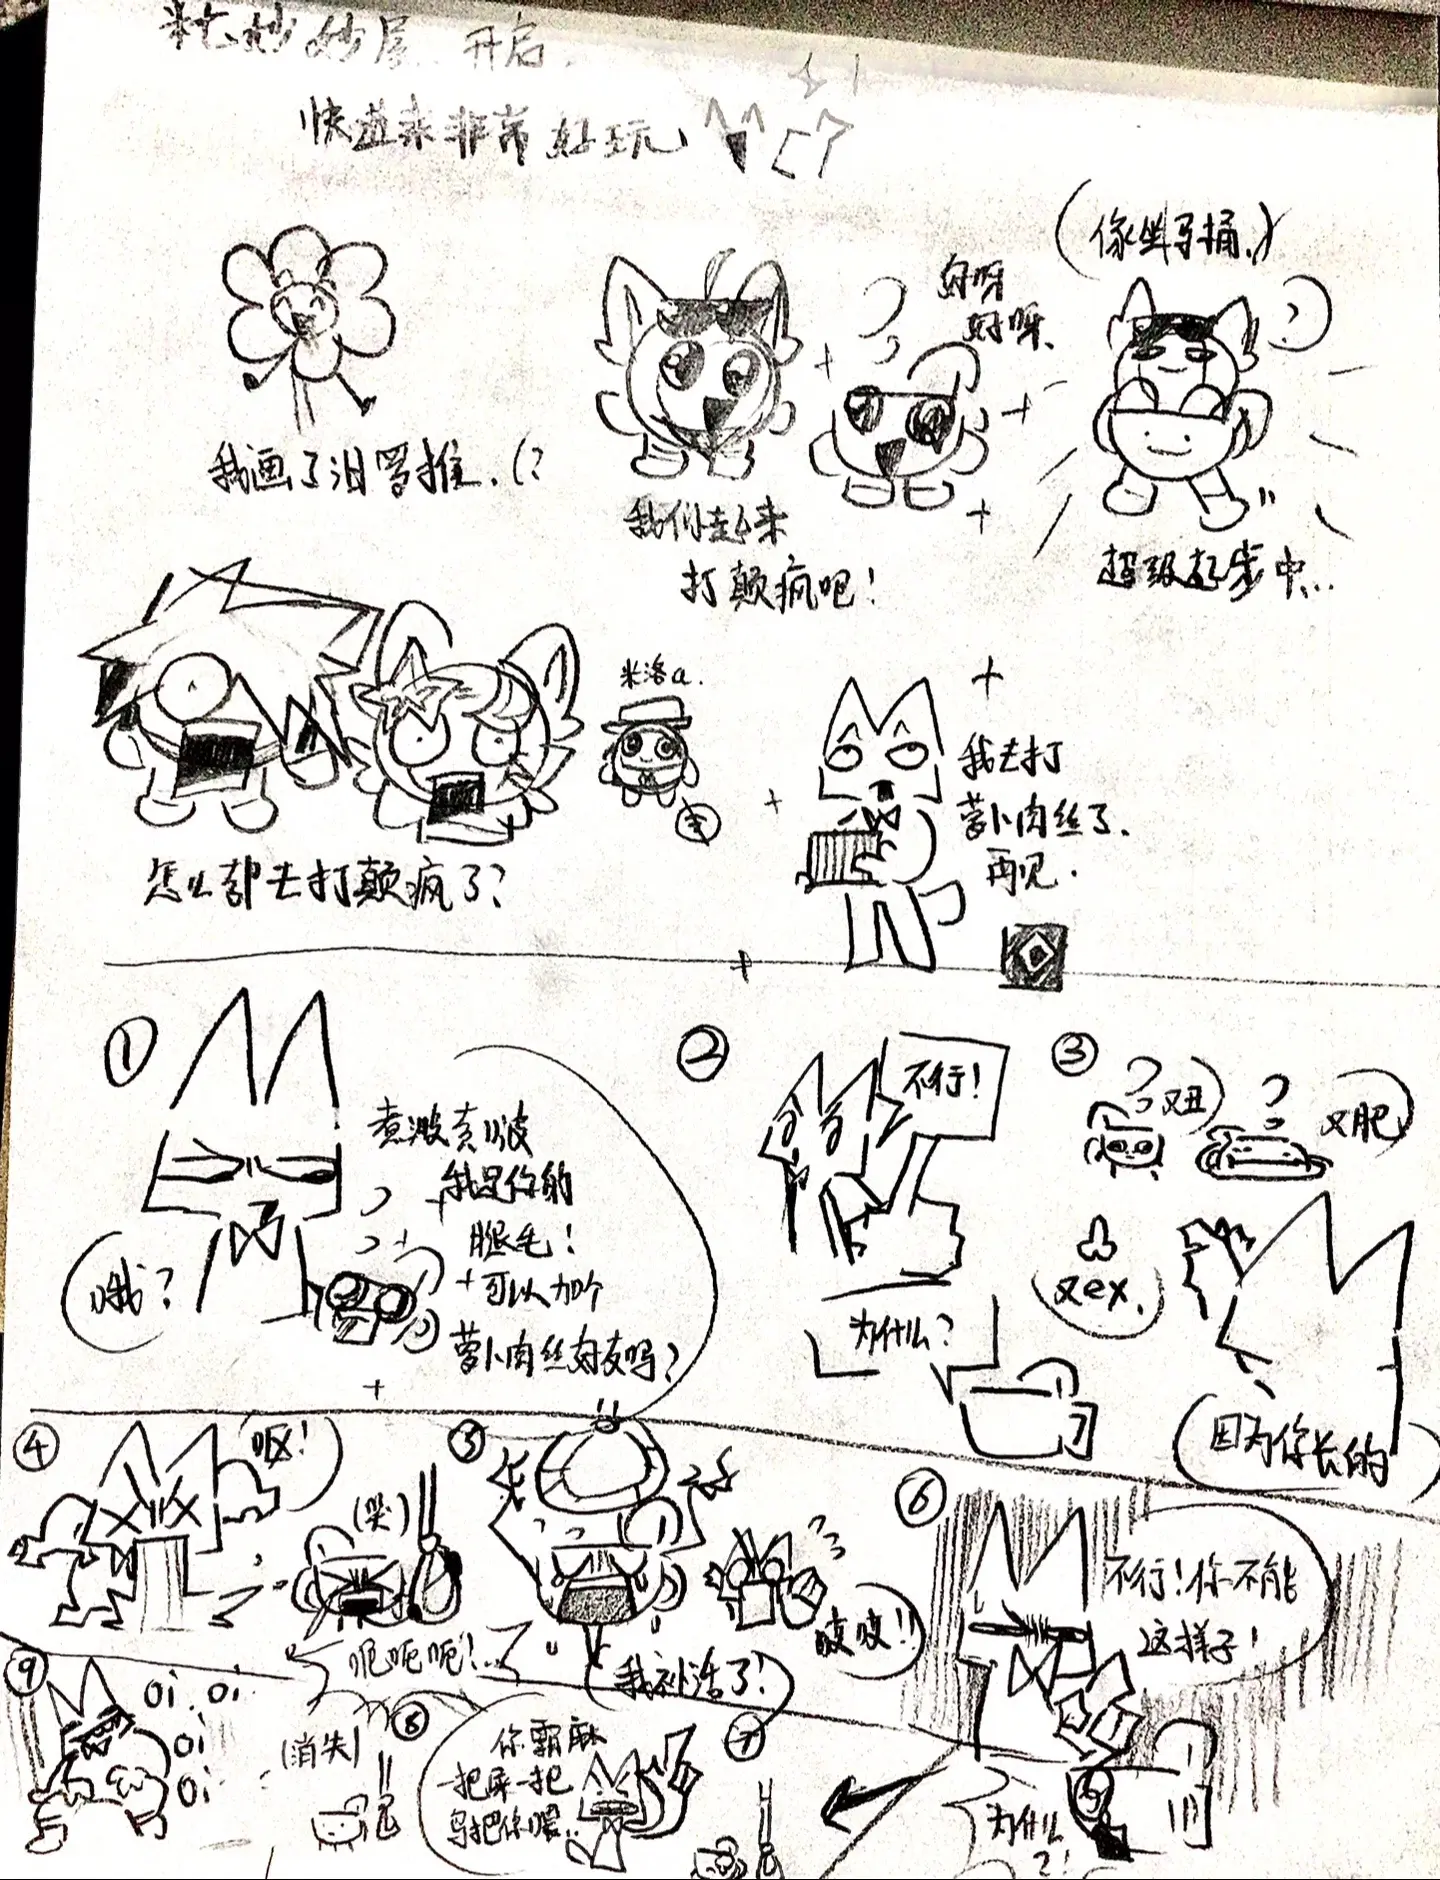 妙妙屋 开启
快进来非常好玩
(像坐马桶、)
好呀
好呀、
我画了泪罗推、(?
我们起来
打颠疯吧！
超级起步中…
米洛a.
我去打
萝卜肉丝了、
再见.
怎么都去打颠疯了?
①
煮波煮波
我是你的
腿毛！
可以加个
萝卜肉丝好友吗?
哦?
②
不行!
为什么?
③
又丑
又肥
又ex.
因为你长的
④
呕!
(哭)
呃呃呃!
⑤
我不活了!
吱吱!!
⑥
不行!你不能
这样子!
为什么
?!
⑦
⑧
你霸麻
一把屎一把
(消失)
⑨
oi oi
oi
oi